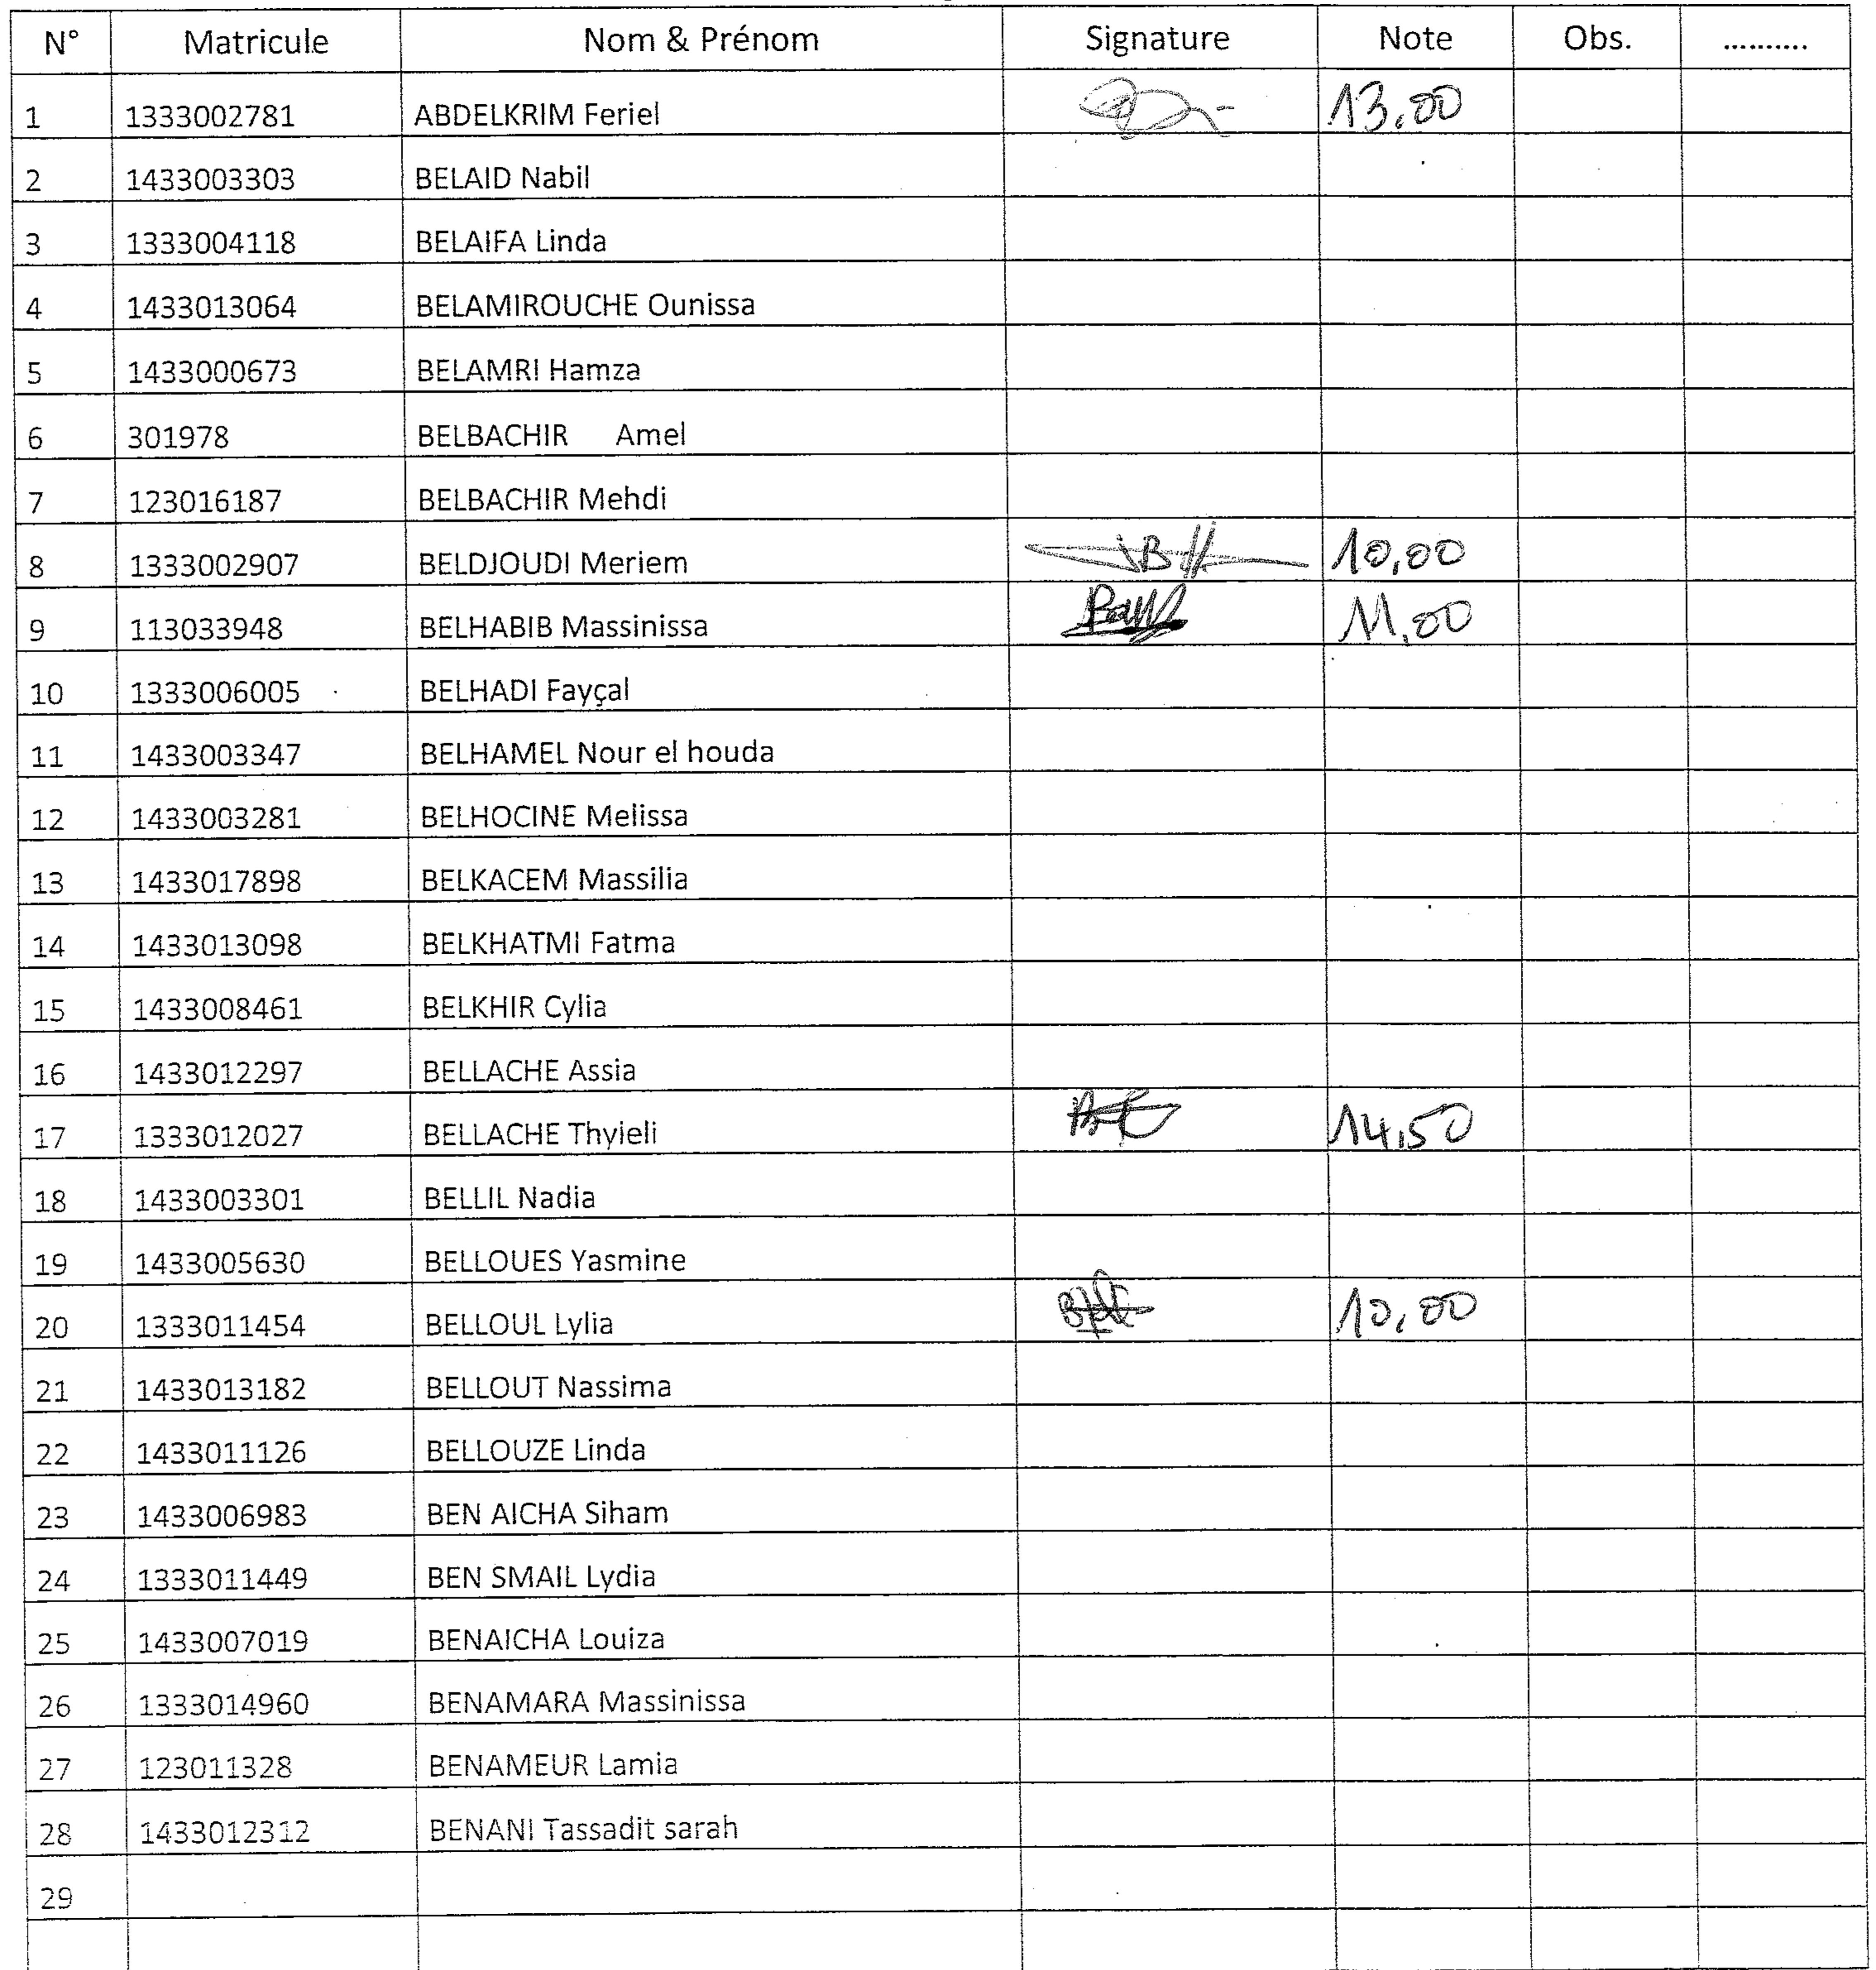 N° Matricule Nom & Prénom Signature Note Obs. ..........
1 1333002781 ABDELKRIM Feriel 13,00
2 1433003303 BELAID Nabil
3 1333004118 BELAIFA Linda
4 1433013064 BELAMIROUCHE Ounissa
5 1433000673 BELAMRI Hamza
6 301978 BELBACHIR Amel
7 123016187 BELBACHIR Mehdi
8 1333002907 BELDJOUDI Meriem 10,00
9 113033948 BELHABIB Massinissa 11,00
10 1333006005 BELHADI Fayçal
11 1433003347 BELHAMEL Nour el houda
12 1433003281 BELHOCINE Melissa
13 1433017898 BELKACEM Massilia
14 1433013098 BELKHATMI Fatma
15 1433008461 BELKHIR Cylia
16 1433012297 BELLACHE Assia
17 1333012027 BELLACHE Thyieli 14,50
18 1433003301 BELLIL Nadia
19 1433005630 BELLOUES Yasmine
20 1333011454 BELLOUL Lylia 10,00
21 1433013182 BELLOUT Nassima
22 1433011126 BELLOUZE Linda
23 1433006983 BEN AICHA Siham
24 1333011449 BEN SMAIL Lydia
25 1433007019 BENAICHA Louiza
26 1333014960 BENAMARA Massinissa
27 123011328 BENAMEUR Lamia
28 1433012312 BENANI Tassadit sarah
29